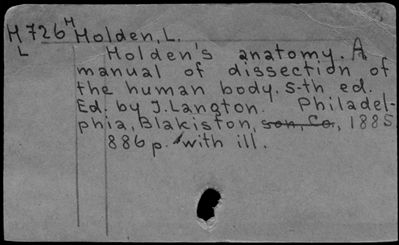 M726 M Holden, L.
L Holden's anatomy. A
manual of dissection of
the human body. 5-th ed.
Ed. by J. Langton. Philadel-
phia, Blakiston, son, Co, 1885
886 p. with ill.